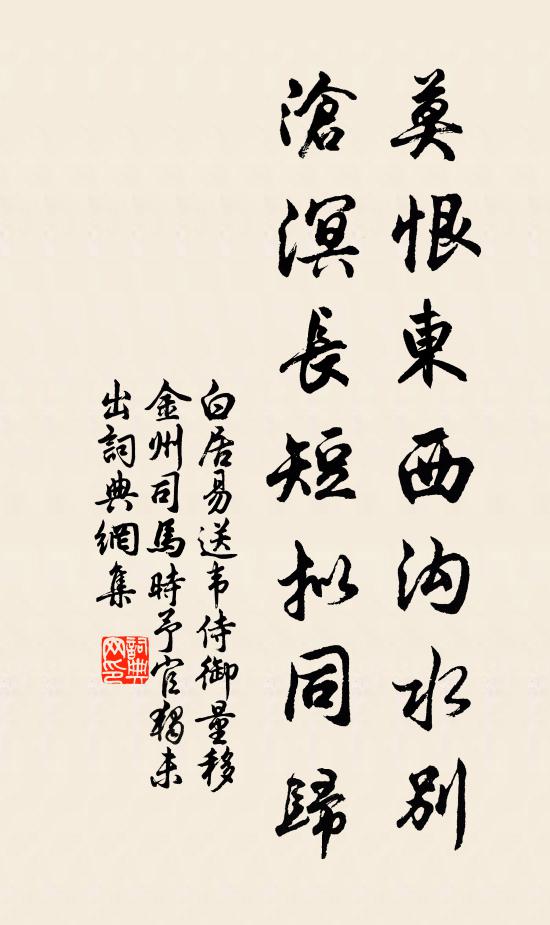 莫恨東西沟水别
滄溟長短拟同歸
白居易送韦侍御量移
金州司馬時予官獨未
出詞典網集
詞典网印